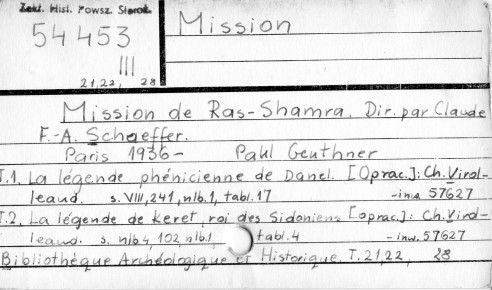 Zakł. Hist. Powsz. Staroż.
54 453
III
21,22, 28
Mission
Mission de Ras-Shamra. Dir. par Claude
F.-A. Schaeffer.
Paris 1936- Paul Geuthner
T.1. La légende phénicienne de Danel. [Oprac.]: Ch. Virol-
leaud. s. VIII, 241, nlb.1, tabl. 17 -inw. 57627
T.2. La légende de Keret, roi des Sidoniens [oprac.]: Ch. Virol-
leaud. s. nlb.4, 102, nlb.1, tabl. 4 -inw. 57627
Bibliothèque Archéologique et Historique. T. 21,22, 28